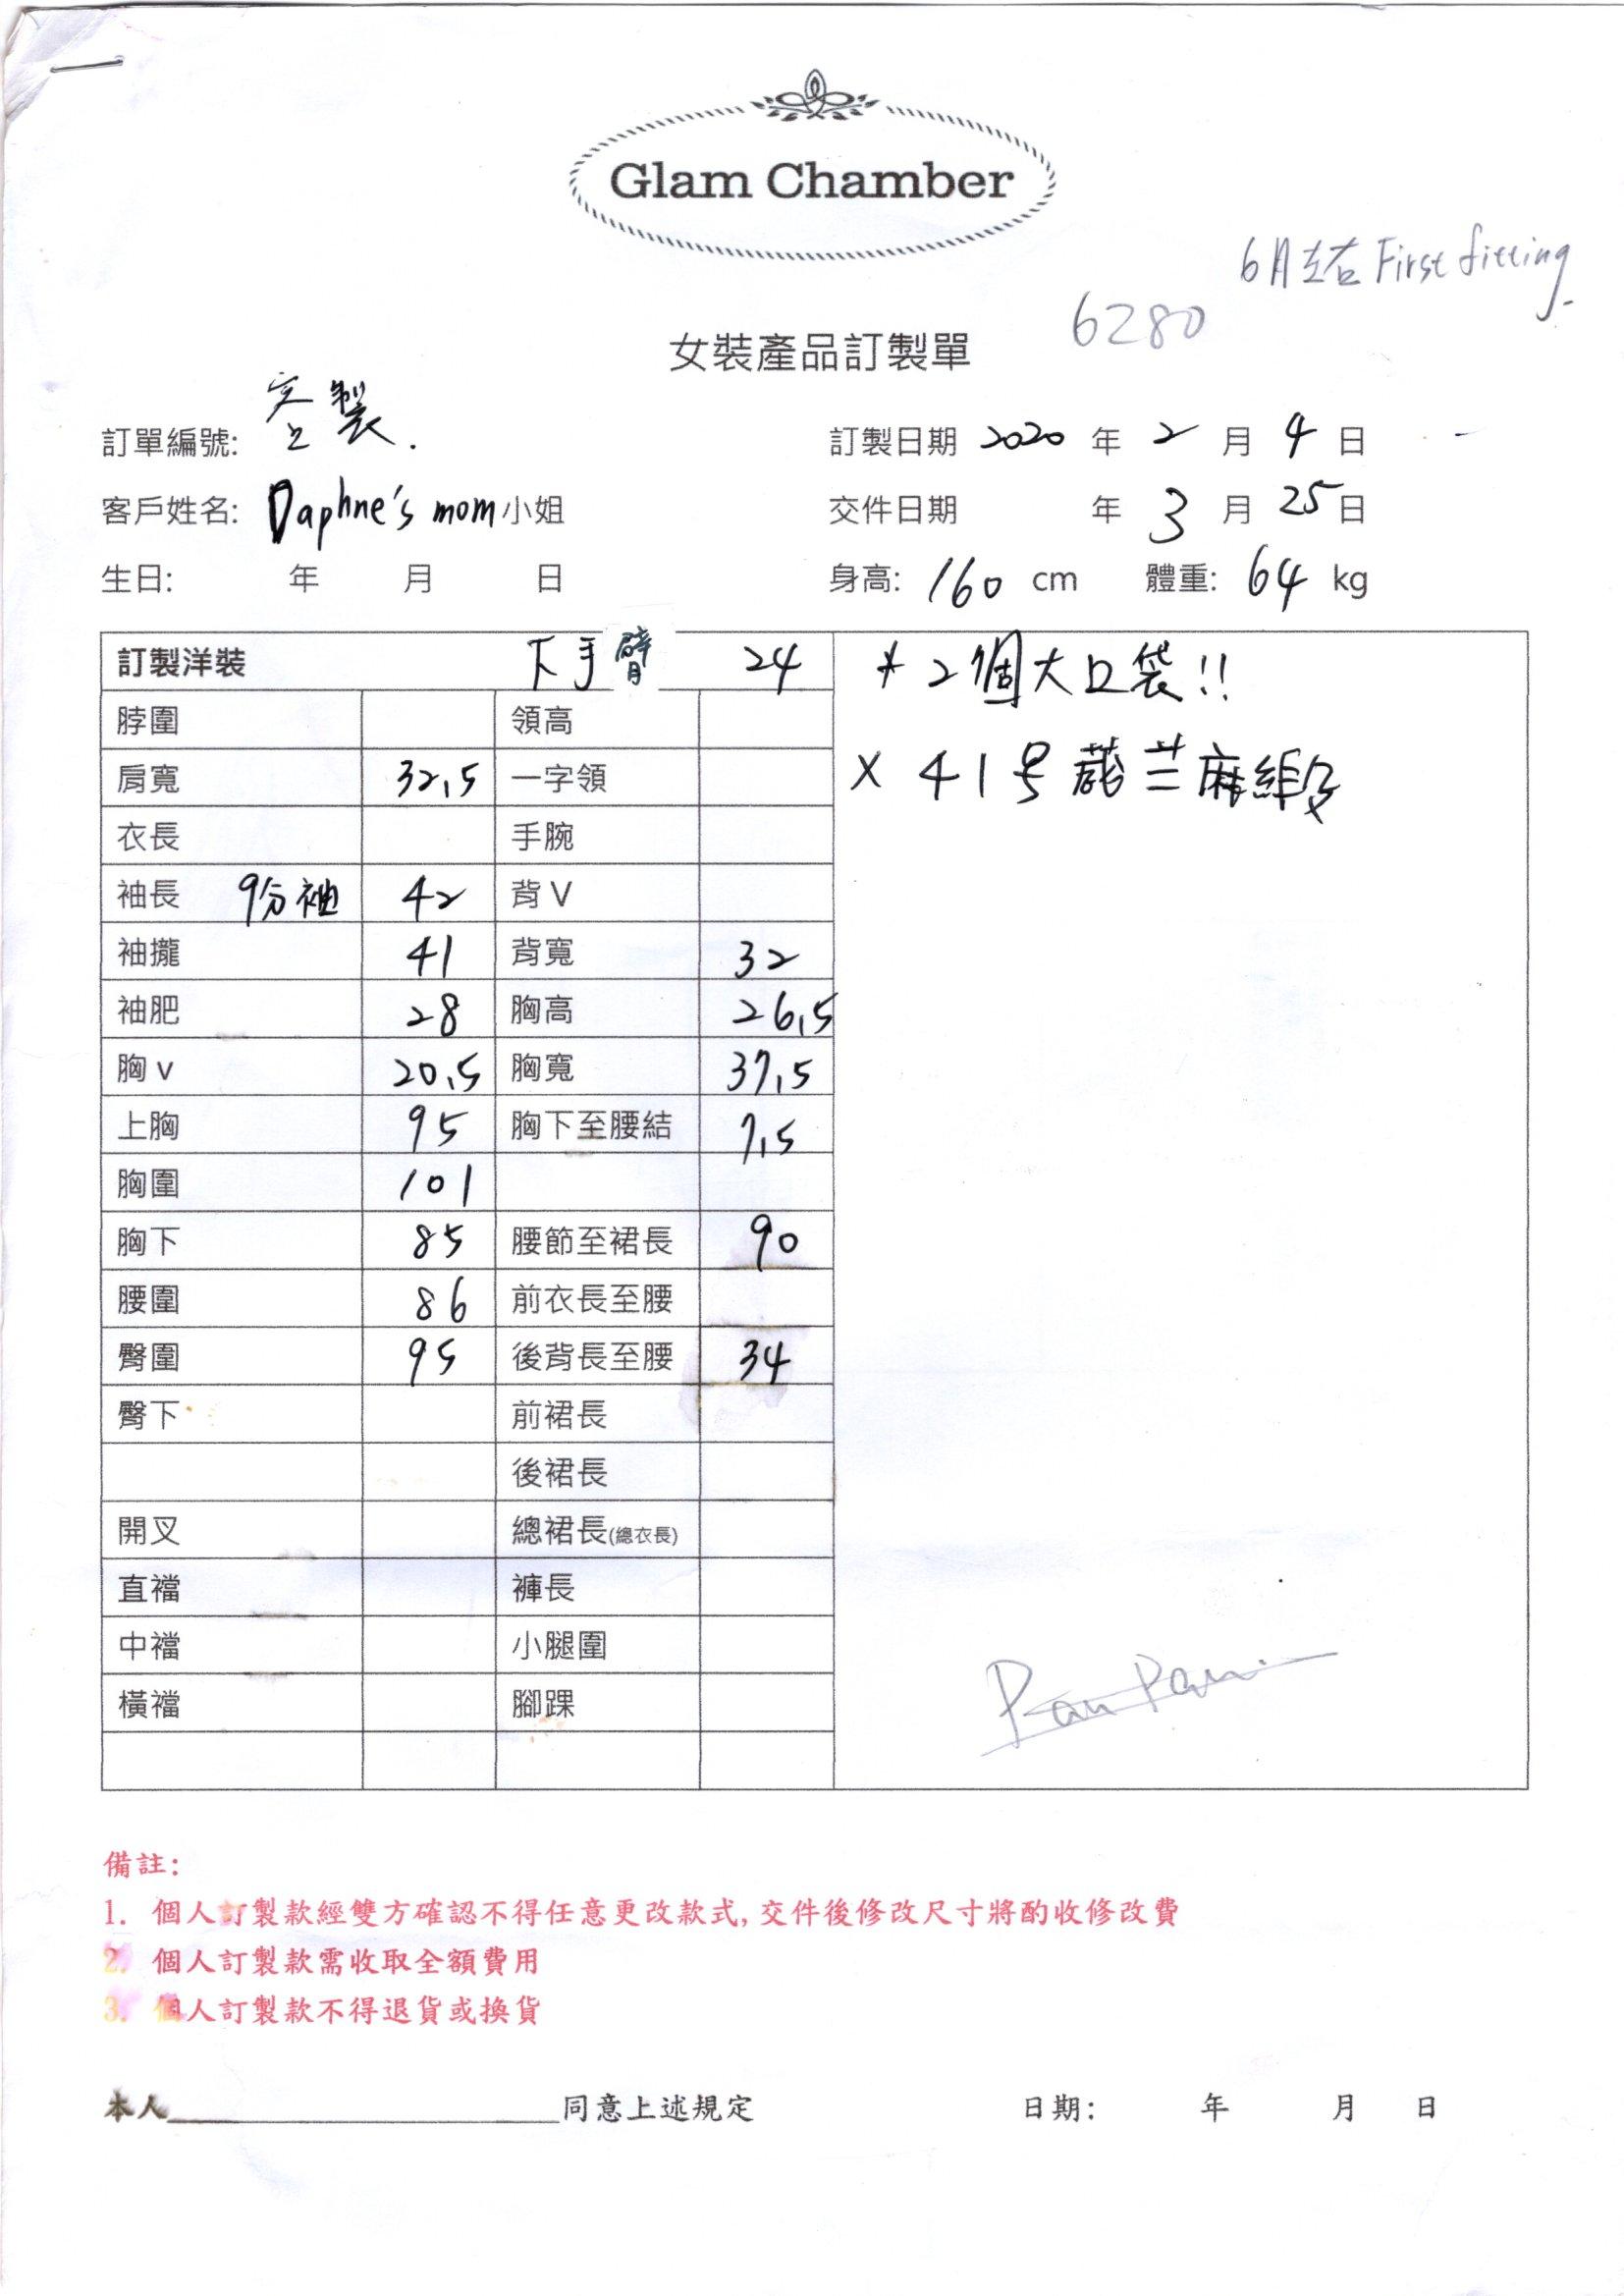 Glam Chamber
6月左右 First fitting
6280
女裝產品訂製單
訂單編號: 定製. 訂製日期 2020 年 2 月 4 日
客戶姓名: Daphne's mom 小姐 交件日期 年 3 月 25 日
生日: 年 月 日 身高: 160 cm 體重: 64 kg
訂製洋裝 下手臂 24 * 2個大口袋!!
脖圍 領高
肩寬 32.5 一字領 x 41号 麻
衣長 手腕
袖長 9分袖 42 背V
袖攏 41 背寬 32
袖肥 28 胸高 26.5
胸v 20.5 胸寬 37.5
上胸 95 胸下至腰結 7.5
胸圍 101
胸下 85 腰節至裙長 90
腰圍 86 前衣長至腰
臀圍 95 後背長至腰 34
臀下 前裙長
後裙長
開叉 總裙長(總衣長)
直襠 褲長
中襠 小腿圍
橫襠 腳踝
備註:
1. 個人訂製款經雙方確認不得任意更改款式, 交件後修改尺寸將酌收修改費
2. 個人訂製款需收取全額費用
3. 個人訂製款不得退貨或換貨
本人 同意上述規定 日期: 年 月 日